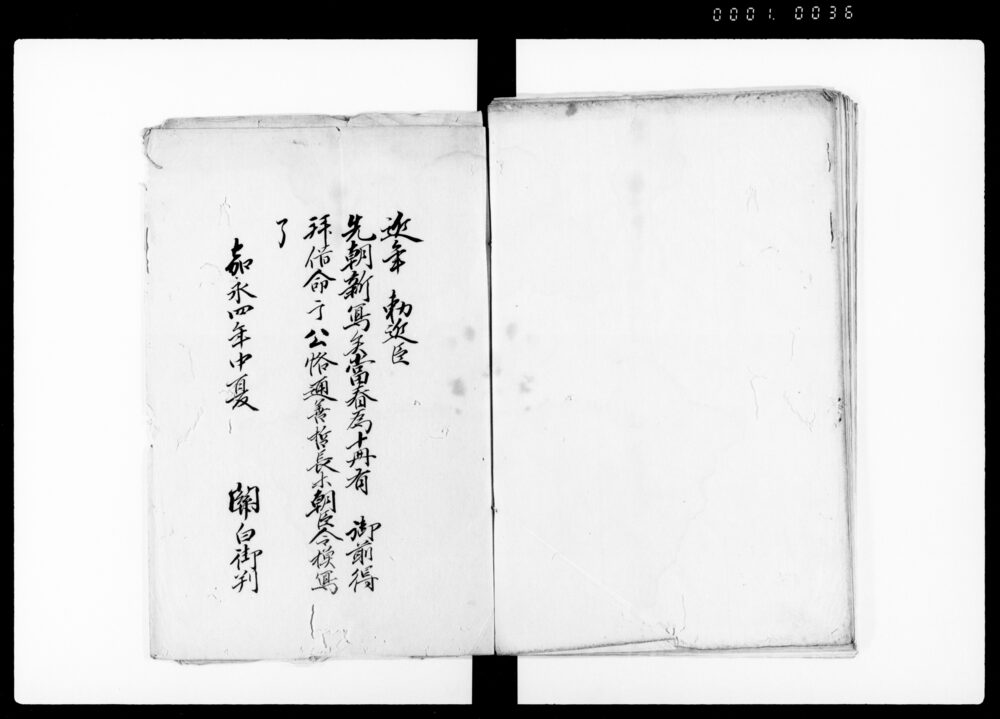 0001. 0036
近年　勅近臣
先朝新写矣當春為十冊有　御前得
拝借命于公恪通善哲長朝臣令摸寫
了
嘉永四年中夏　關白御判